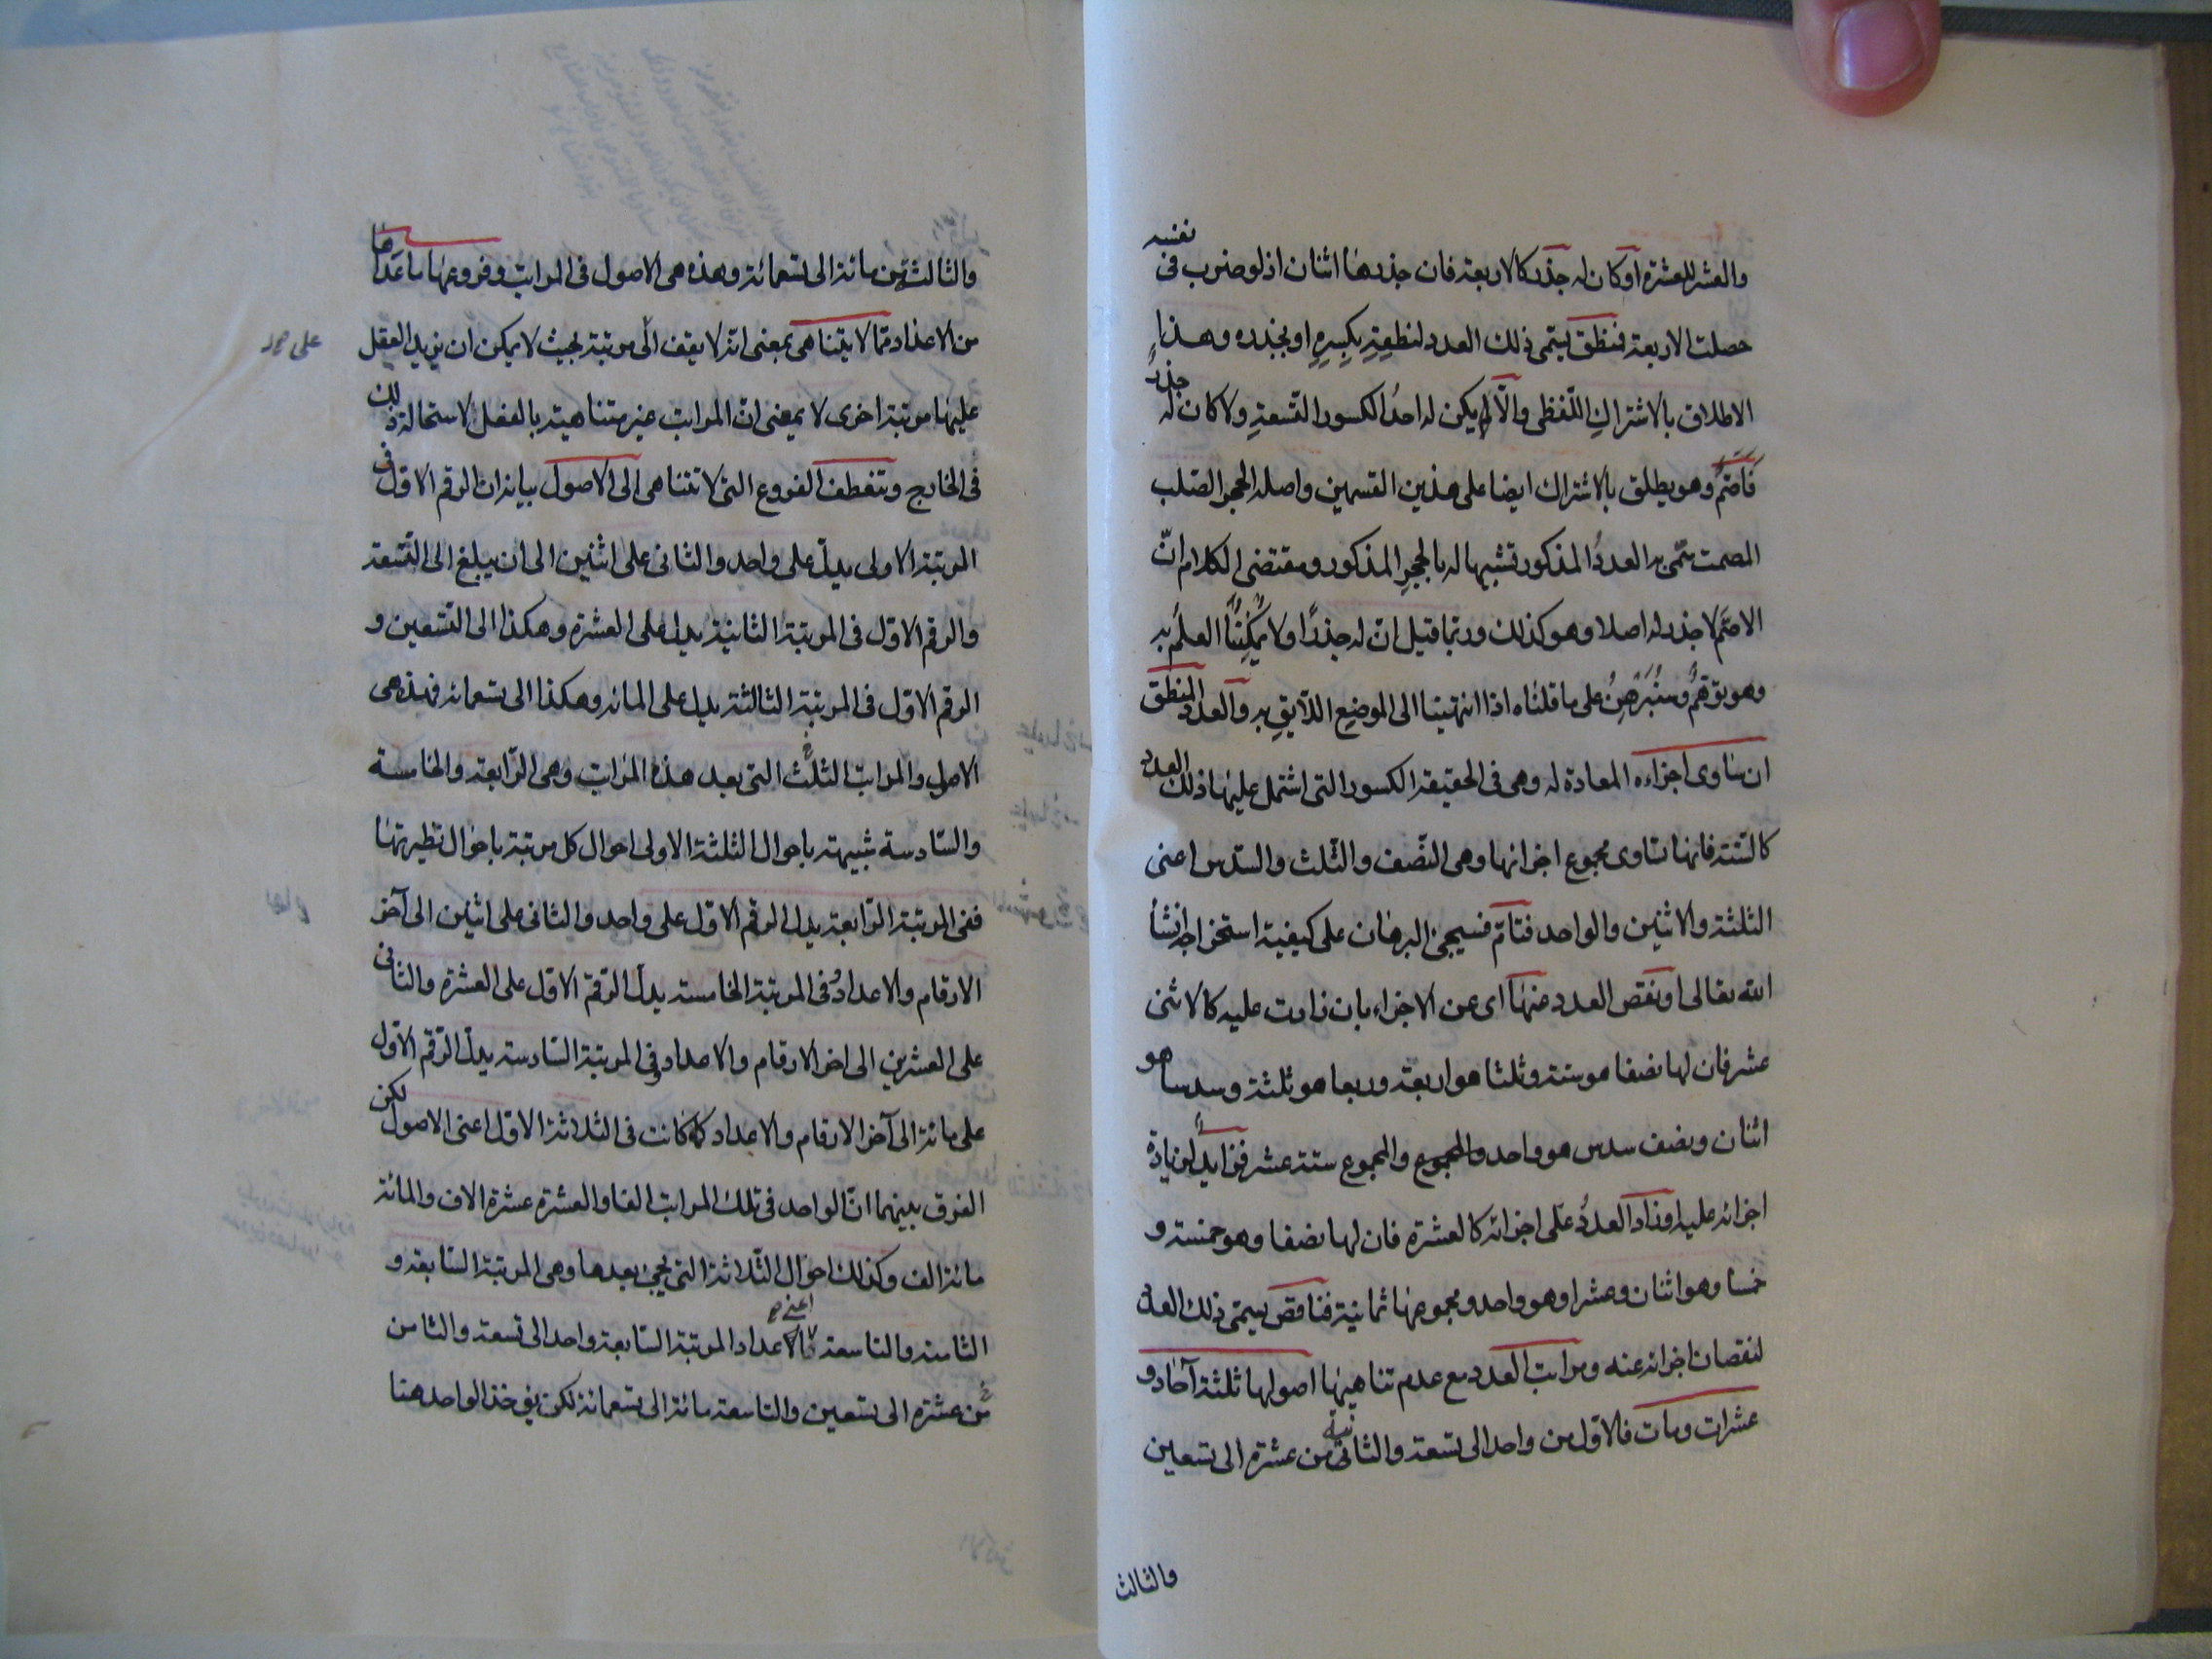 والعشر للعشرة او كان له جذر كالاربعة فان جذرها اثنان اذ لو ضرب فى نفسه
حصلت الاربعة فمنطق يسمى ذلك العدد لنطقه بكسره او بجذره وهذا
الاطلاق بالاشتراك اللفظى والا لم يكن له احد الكسور التسعة ولا كان له جذر
فاصم وهو يطلق بالاشتراك ايضا على هذين القسمين واصله الحجر الصلب
المصمت سمى به العدد المذكور تشبيها له بالحجر المذكور ومقتضى الكلام ان
الاصم لا جذر له اصلا وهو كذلك وربما قيل ان له جذرا ولا يمكننا العلم به
وهو توهم وسنبرهن على ما قلناه اذا انتهينا الى الموضع اللايق به والعدد المنطق
ان ساوى اجزاءه المعادة له وهى فى الحقيقة الكسور التى اشتمل عليها ذلك العدد
كالستة فانها تساوى مجموع اجزائها وهى النصف والثلث والسدس اعنى
الثلثة والاثنين والواحد فتام فسيجئ البرهان على كيفية استخراجه انشأ
الله تعالى او نقص العدد عنها اى عن الاجزاء بان زادت عليه كالاثنى
عشر فان لها نصفا هو ستة وثلثا هو اربعة وربعا هو ثلثة وسدسا هو
اثنان ونصف سدس هو واحد والمجموع والمجموع ستة عشر فزايد لزيادة
اجزائه عليه او زاد العدد على اجزائه كالعشرة فان لها نصفا وهو خمسة و
خمسا وهو اثنان وعشرا وهو واحد ومجموعها ثمانية فناقص يسمى ذلك العدد
لنقصان اجزائه عنه ومراتب العدد مع عدم تناهيها اصولها ثلثة آحاد و
عشرات ومات فالاول من واحد الى تسعة والثانية من عشرة الى تسعين
والثالث
والثالثة من مائة الى تسعمائة وهذه هى الاصول فى المراتب وفروعها ما عداها
من الاعداد مما لا يتناهى بمعنى انه لا يقف الى مرتبة بحيث لا يمكن ان يزيد العقل
عليها مرتبة اخرى لا بمعنى ان المراتب غير متناهية بالفعل لاستحالة ذلك
فى الخارج وتنعطف الفروع التى لا تتناهى الى الاصول بيانه ان الرقم الاول فى
المرتبة الاولى يدل على واحد والثانى على اثنين الى ان يبلغ الى التسعة
والرقم الاول فى المرتبة الثانية يدل على العشرة وهكذا الى التسعين و
الرقم الاول فى المرتبة الثالثة يدل على المائة وهكذا الى تسعمائة فهذه هى
الاصول والمراتب الثلث التى بعد هذه المراتب وهى الرابعة والخامسة
والسادسة شبيهة باحوال الثلثة الاولى احوال كل مرتبة باحوال نظيرتها
ففى المرتبة الرابعة يدل الرقم الاول على واحد والثانى على اثنين الى آخر
الارقام والاعداد وفى المرتبة الخامسة يدل الرقم الاول على العشرة والثانى
على العشرين الى اخر الارقام والاعداد وفى المرتبة السادسة يدل الرقم الاول
على مائة الى آخر الارقام والاعداد كما كانت فى الثلاثة الاول اعنى الاصول لكن
الفرق بينهما ان الواحد فى تلك المراتب الفا والعشرة عشرة الاف والمائة
مائة الف وكذلك احوال الثلاثة التى يجئ بعدها وهى المرتبة السابعة و
الثامنة والتاسعة فالاعداد المرتبة السابعة واحد الى تسعة والثامن
من عشرة الى تسعين والتاسعة مائة الى تسعمائة لكن يؤخذ الواحد هنا